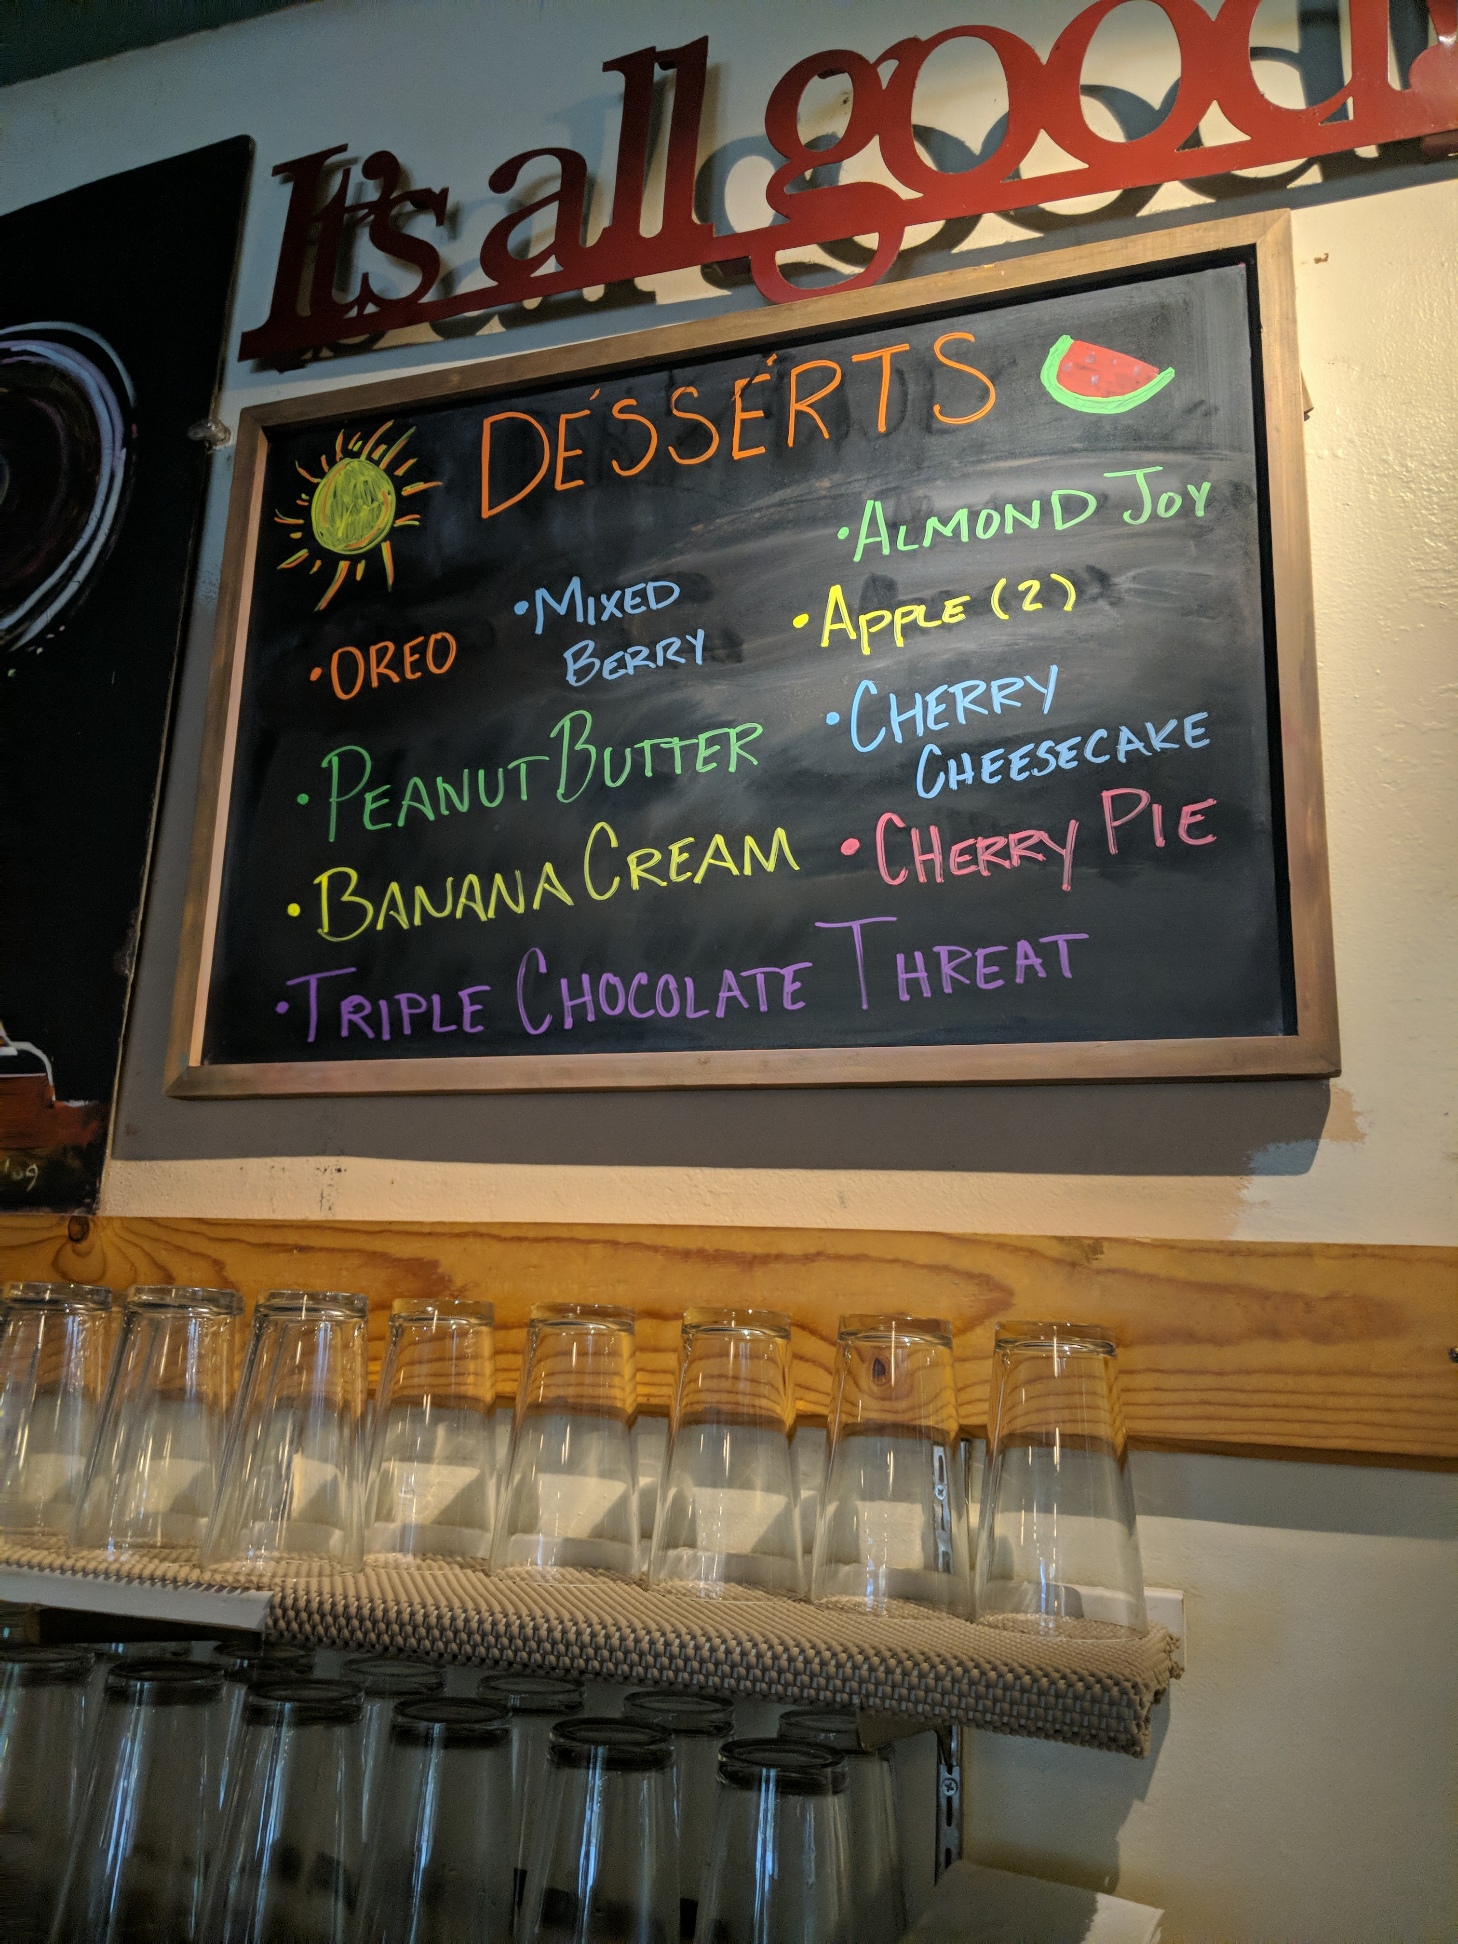 It's all good!
DESSERTS
• OREO
• MIXED
BERRY
• PEANUT BUTTER
• BANANA CREAM
• TRIPLE CHOCOLATE THREAT
• ALMOND JOY
• APPLE (2)
• CHERRY
CHEESECAKE
• CHERRY PIE
'09